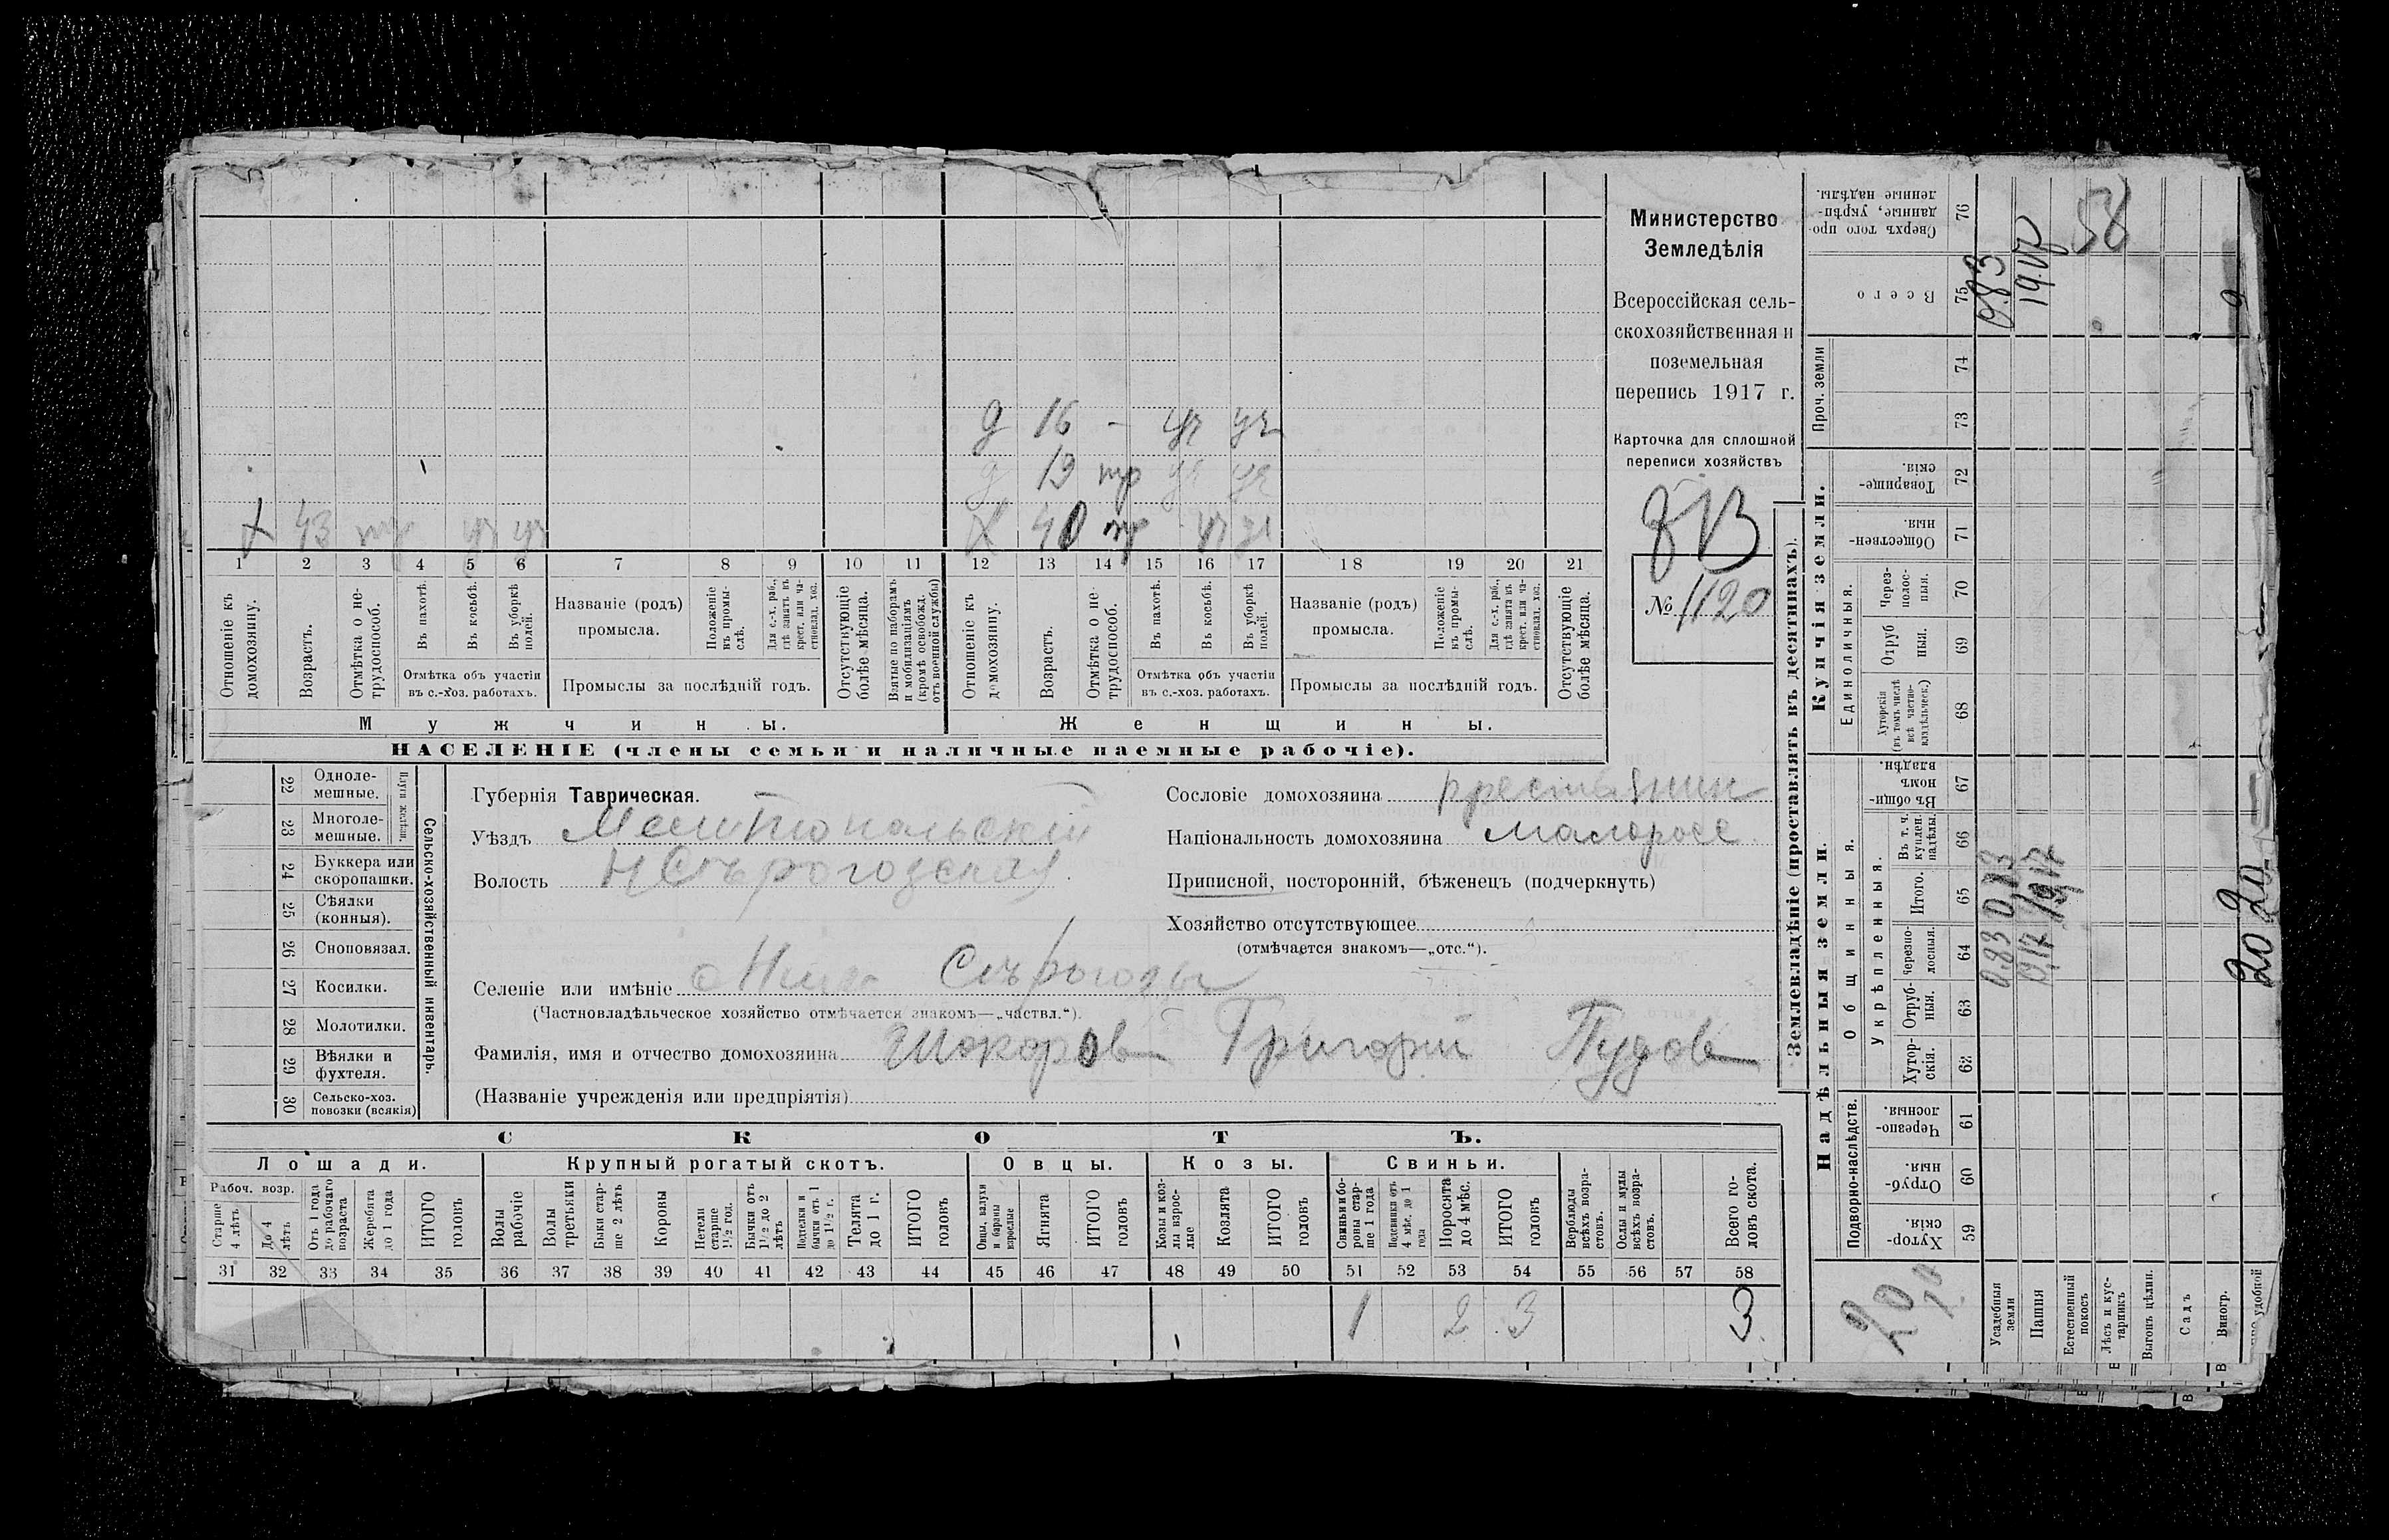 Министерство
Земледѣлія
Всероссійская сель-
скохозяйственная и
поземельная
перепись 1917 г.
Карточка для сплошной
переписи хозяйствъ
№ 1120
д 16 - уч уч
д 19 тр уч уч
х 43 тр уч уч
х 40 тр уч уч
1 2 3 4 5 6 7 8 9 10 11 12 13 14 15 16 17 18 19 20 21
Отношеніе къ домохозяину.
Возрастъ.
Отмѣтка о не-трудоспособ.
Въ пахотѣ.
Въ косьбѣ.
Въ уборкѣ полей.
Отмѣтка объ участіи въ с.-хоз. работахъ.
Названіе (родъ) промысла.
Положеніе въ промы-слѣ.
Для с.-х. раб., гдѣ занятъ въ крест. или ча-стновлад. хоз.
Промыслы за послѣдній годъ.
Отсутствующіе болѣе мѣсяца.
Взятые по наборамъ и мобилизаціямъ (кромѣ освобожд. отъ военной службы)
Отношеніе къ домохозяину.
Возрастъ.
Отмѣтка о не-трудоспособ.
Въ пахотѣ.
Въ косьбѣ.
Въ уборкѣ полей.
Отмѣтка объ участіи въ с.-хоз. работахъ.
Названіе (родъ) промысла.
Положеніе въ промы-слѣ.
Для с.-х. раб., гдѣ занята въ крест. или ча-стновлад. хоз.
Промыслы за послѣдній годъ.
Отсутствующіе болѣе мѣсяца.
Мужчины. Женщины.
НАСЕЛЕНІЕ (члены семьи и наличные наемные рабочіе).
22 Одноле-мешные.
23 Многоле-мешные.
24 Буккера или скоропашки.
25 Сѣялки (конныя).
26 Сноповязал.
27 Косилки.
28 Молотилки.
29 Вѣялки и фухтеля.
30 Сельско-хоз. повозки (всякія)
Сельско-хозяйственный инвентарь.
Губернія Таврическая.
Уѣздъ Мелитопольскій
Волость Н Сѣрогозская
Селеніе или имѣніе Нижн Сѣрогозы
(Частновладѣльческое хозяйство отмѣчается знакомъ—„частвл.“).
Фамилія, имя и отчество домохозяина Шокоров Григорій Пудов
(Названіе учрежденія или предпріятія)
Сословіе домохозяина крестьянин
Національность домохозяина малоросс
Приписной, посторонній, бѣженецъ (подчеркнуть)
Хозяйство отсутствующее
(отмѣчается знакомъ—„отс.“).
СКОТЪ.
Лошади. Крупный рогатый скотъ. Овцы. Козы. Свиньи.
Рабоч. возр.
Старше 4 лѣтъ
До 4 лѣтъ
Отъ 1 года до рабочаго возраста
Жеребята до 1 года
ИТОГО головъ
Волы рабочіе
Волы третьяки
Быки стар-ше 2 лѣтъ
Коровы
Нетели старше 1½ год.
Бычки отъ 1½ до 2 лѣтъ
Подтелки и бычки отъ 1 до 1½ г.
Телята до 1 г.
ИТОГО головъ
Овцы, валухи и бараны взрослые
Ягнята
ИТОГО головъ
Козы и коз-лы взрос-лые
Козлята
ИТОГО головъ
Свиньи и бо-ровы стар-ше 1 года
Подсвинки отъ 4 мѣс. до 1 года
Поросята до 4 мѣс.
ИТОГО головъ
Верблюды всѣхъ возра-стовъ.
Ослы и мулы всѣхъ возра-стовъ.
Всего го-ловъ скота.
31 32 33 34 35 36 37 38 39 40 41 42 43 44 45 46 47 48 49 50 51 52 53 54 55 56 57 58
1 2 3 3
Землевладѣніе (проставлять въ десятинахъ).
Надѣльныя земли. Купчія земли. Проч. земли
Подворно-наслѣдств.
Общинныя.
Укрѣпленныя.
Единоличныя.
Хутор-скія. 59
Отруб-ныя. 60
Черезпо-лосныя. 61
Хутор-скія. 62
Отруб-ныя. 63
Черезпо-лосныя. 64
Итого. 65
Въ т. ч. куплен. надѣлы. 66
Въ общин-номъ владѣн. 67
Хуторскія (въ томъ числѣ всѣ частно-владѣльческ.) 68
Отруб ныя. 69
Через-полос-ныя. 70
Обществен-ныя. 71
Товарище-скія. 72
73 74
Всего 75
Сверхъ того про-данные, укрѣп-ленные надѣлы. 76
Усадебныя земли 0.83 0,83 083
Пашня 19,17 19,17 19.17
Естественный покосъ
Лѣсъ и кус-тарникъ
Выгонъ цѣлин.
Садъ
Виногр.
удобной 20 20
20
58